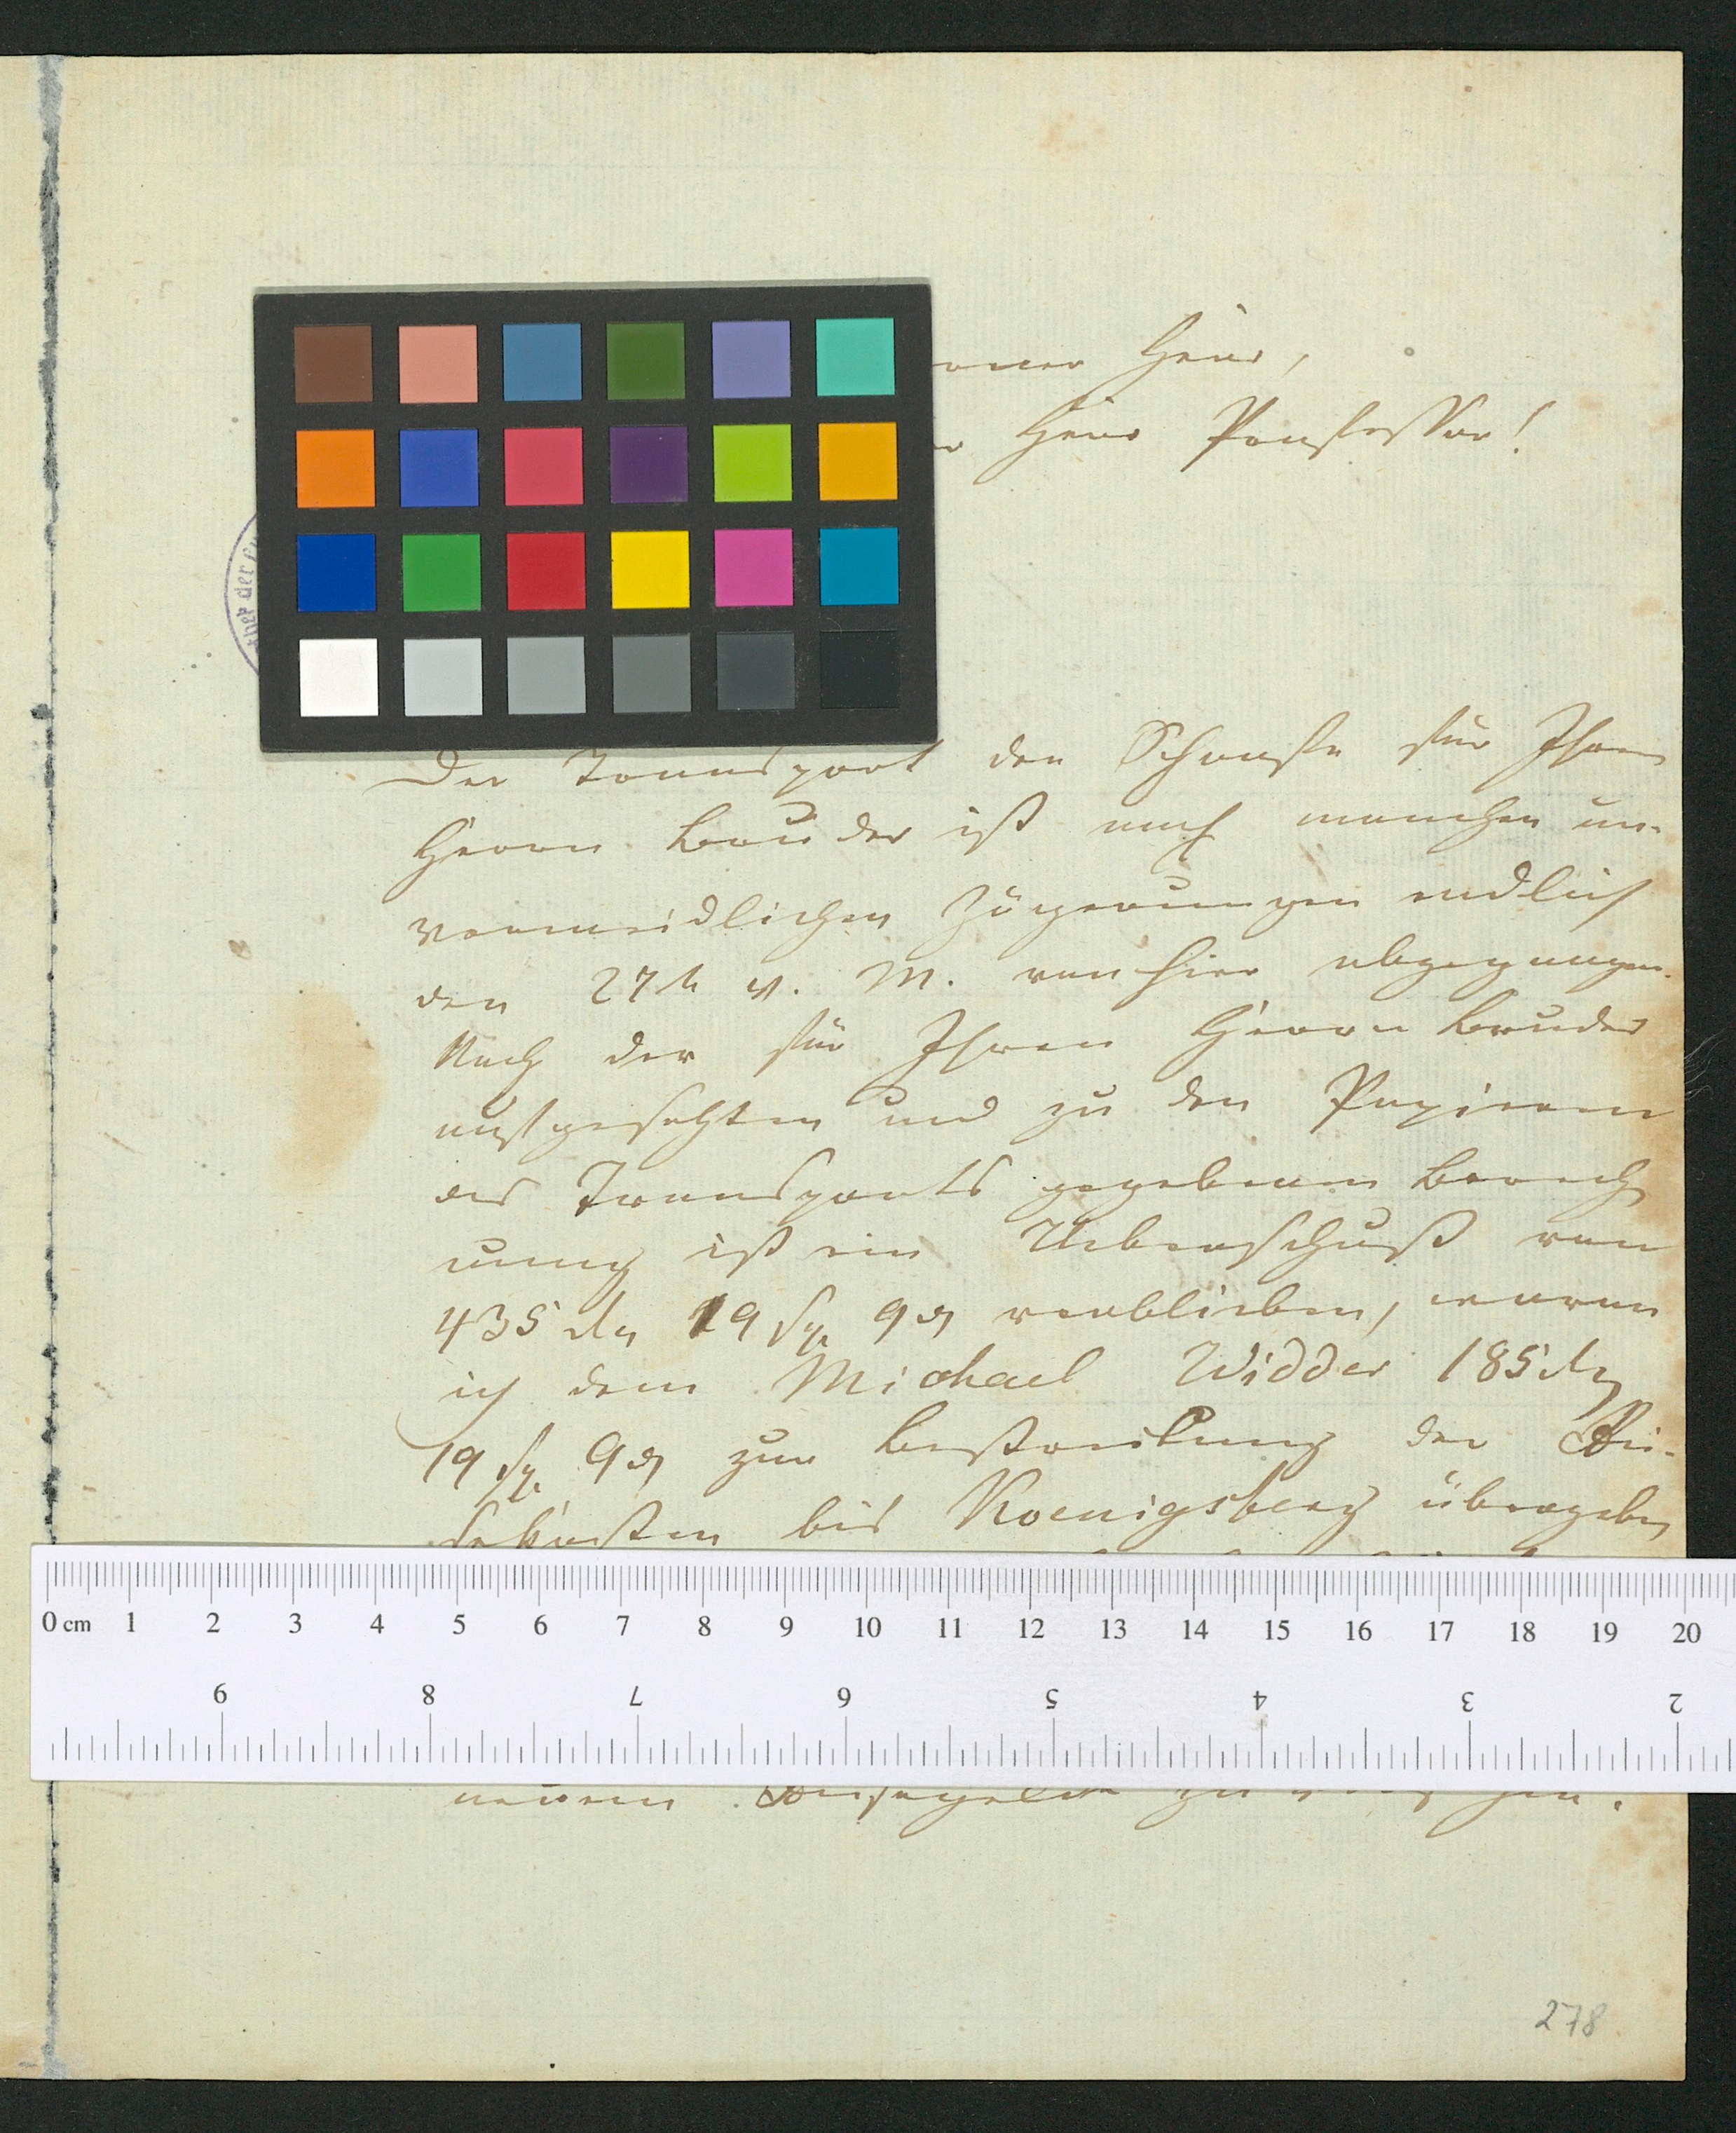 Herr,
Herr Professor!
Der Transport der Schaafe für Ihren
Herrn Bruder ist nach manchen un-
vermeidlichen Zögerungen endlich
den 27t v. M. von hier abgegangen.
Nach der für Ihren Herrn Bruder
aufgesetzten und zu den Papieren
des Transports gegebenen Berech
nung ist ein Ueberschuß von
435 rh 19 sg 9 d verblieben, wovon
ich dem Michael Widder 185 rh
19 sg 9 d zur Bestreitung der Rei-
sekosten bis Koenigsberg übergeben
0 cm 1 2 3 4 5 6 7 8 9 10 11 12 13 14 15 16 17 18 19 20
9 8 7 6 5 4 3 2
neuem Reisegelde zu
278